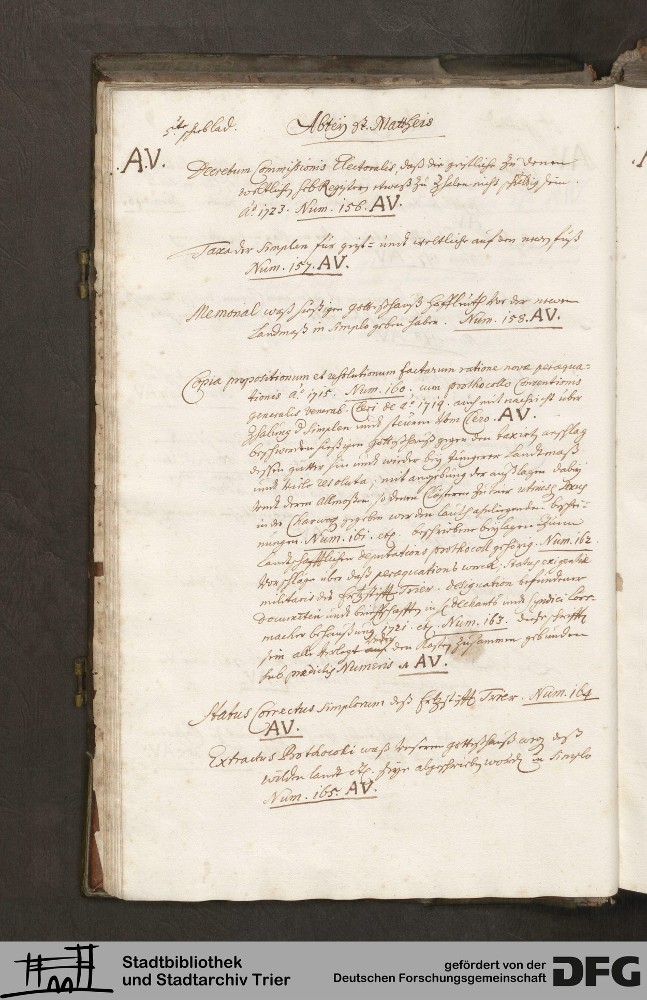 5te schublad. Abtey St. Mattheis
A.V. Decretum Commissionis Electoralis, daß die geistliche zu denen
weltlichen heb Registern etwaß zu zahlen nicht schuldig sein.
Aõ 1723. Num. 156. AV.
Taxa der Simplen für geist= und weltliche auf den newen fuß
Num. 157. AV.
Memorial waß hiesigen Gotteßhauß hoffleuth vor der newen
Landmaß in Simplo geben haben. Num. 158. AV.
Copia propositionum et resolutionum factarum ratione novæ peræqua=
tionis aõ 1715. Num. 160. cum prothocollo Conventionis
generalis venerab. Cleri de aõ 1719. auch mit nachricht über
Zhalung d Simplen und steuren vom Clero. AV.
beschwerden hiesigen Gotteßhauß gegen den taxirten anschlag
dessen gütter hin und wieder bey jüngerer Landmaß
und theils resoluta; mit angebung der außlagen dabey
und deren Allmoßen, so denen Clöstern zu trier utriusq. sexus
in der Charwoch gegeben werden lauth beyliegenden
Num. 161. etc. beschriebene beylagen zum
Landschafftlichen deputations prothocoll gehörig. Num. 162.
Vorschläge über daß peræquations werck, Status exigentiæ
militaris des Ertzstifft Trier. Designation befundener
Documenten und brieffschafften in H. Dechants und Syndici
macher behaußung 1721. etc. Num. 163. diese schrifften
sein alle verlegt auf den Kasten zusammen gebunden
sub prædictis Numeris AV.
Status Correctus Simplorum deß Ertzstifft Trier. Num. 164
AV.
Extractus Prothocolli waß unserem gotteßhauß wegen deß
wilden landt etc. seye abgeschrieben worden in Simplo
Num. 165. AV.
Stadtbibliothek
und Stadtarchiv Trier
gefördert von der
Deutschen Forschungsgemeinschaft
DFG